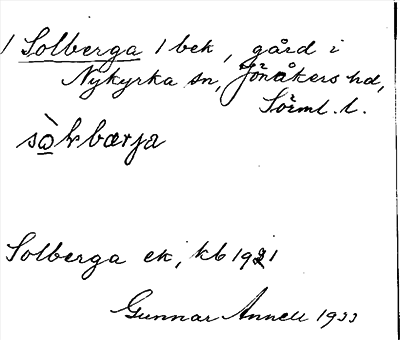 1 Solberga 1 bek, gård i
Nykyrka sn, Jönåkers hd,
Sörml. l.
Solberga ek, kb 1921
Gunnar Annell 1933